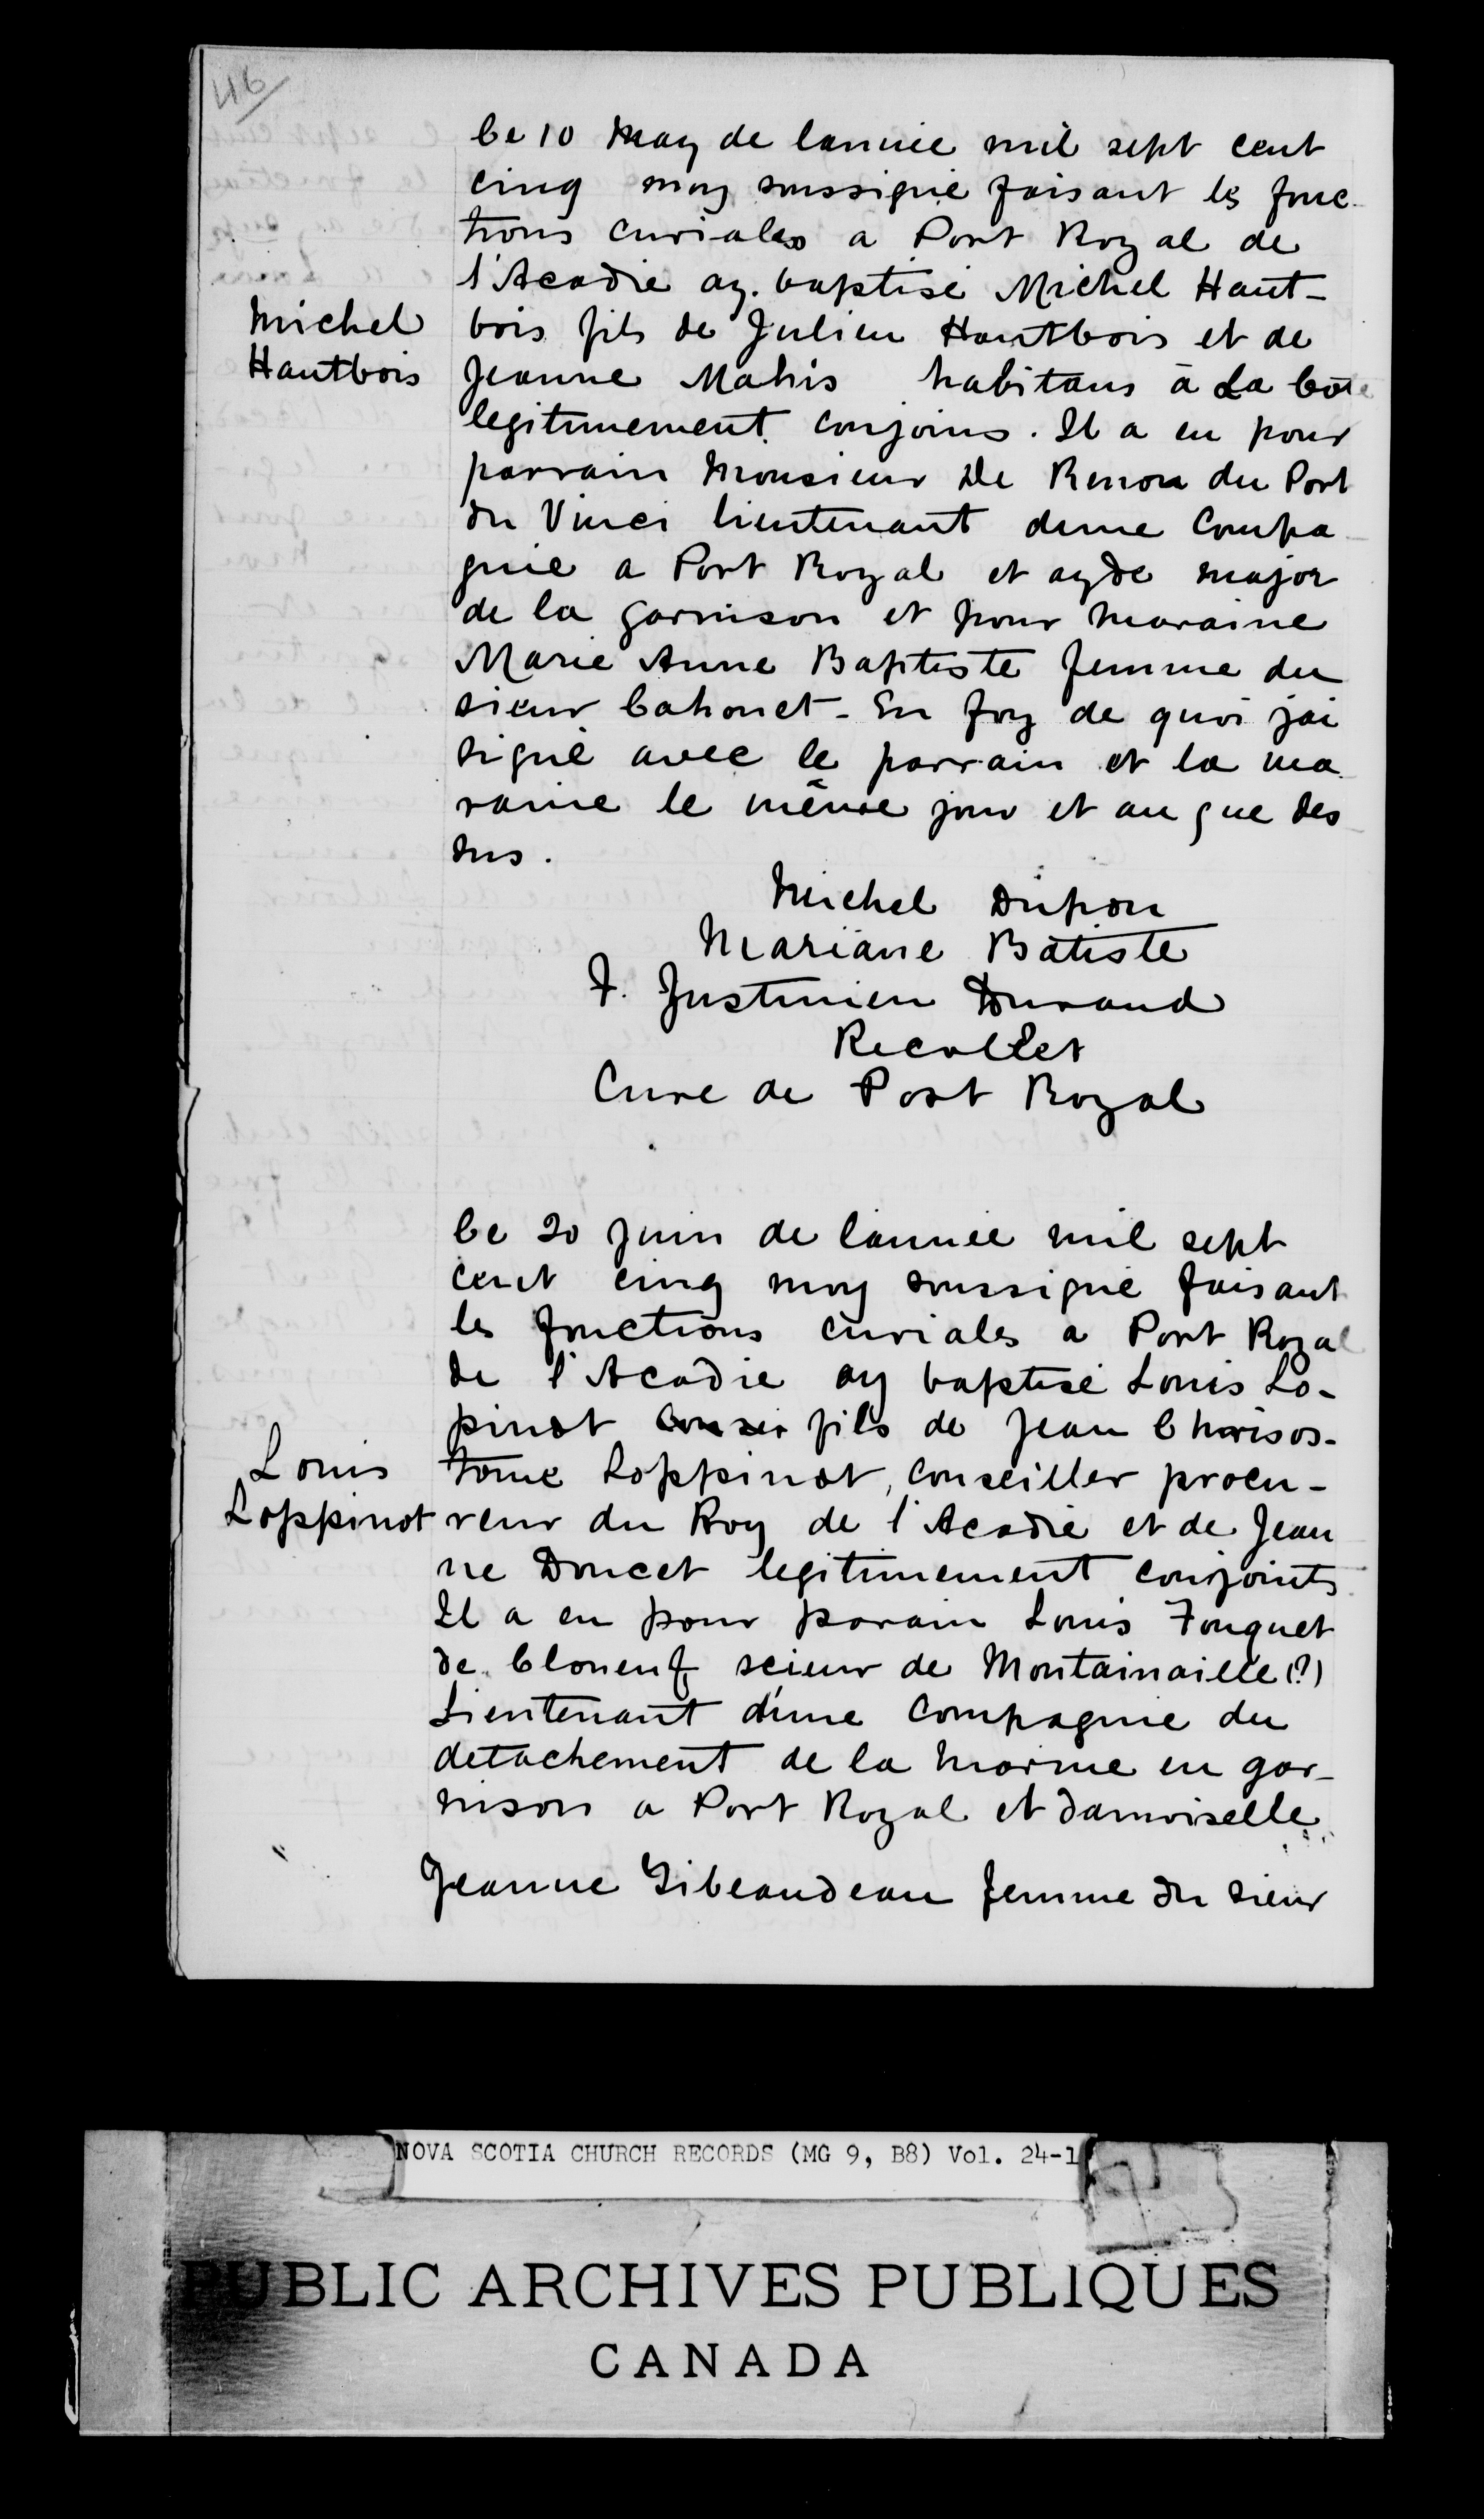 46
Le 10 May de lannee mil sept cent
cinq moy soussigné faisant les fonc-
tions curiales a Port Royal de
l'Acadie ay. baptisé Michel Haut-
Michel
Hautbois
bois fils de Julien Hautbois et de
Jeanne Mahis habitans à La Côte
legitimement conjoins. Il a eu pour
parrain Monsieur De Renou du Port
du Vinci lieutenant dune Compa-
gnie a Port Royal et ayde major
de la garnison et pour maraine
Marie Anne Baptiste femme du
sieur Cahouet - En foy de quoi jai
signé avec le parrain et la ma-
raine le même jour et an que des-
sus.
Michel Dupon
Mariane Batiste
F. Justinien Durand
Recollet
Cure de Port Royal
Le 20 Juin de lannee mil sept
cent cinq moy soussigné faisant
les fonctions curiales a Port Royal
de l'Acadie ay baptisé Louis Lo-
pinot fils de Jean Chrisos-
Louis
Loppinot
tome Loppinot, conseiller procu-
reur du Roy de l'Acadie et de Jean
ne Doucet legitimement conjoints
Il a eu pour parain Louis Fouquet
de Cloneuf scieur de Montainaille (?)
Lieutenant d'une Compagnie du
detachement de la Marine en gar-
nison a Port Royal et damoiselle
Jeanne Gibeaudeau femme du sieur
NOVA SCOTIA CHURCH RECORDS (MG 9, B8) Vol. 24-1
PUBLIC ARCHIVES PUBLIQUES
CANADA